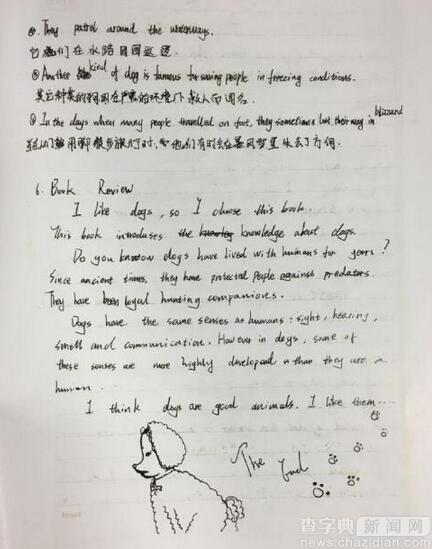 ⊕. They patrol around the waterways.
它们在水路周围巡逻.
⊕ Another kind of dog is famous for saving people in freezing conditions.
其它种类的狗因在严寒的环境下救人而闻名.
⊕ In the days when many people travelled on foot, they sometimes lost their way in blizzard
当人们用脚步旅行时,他们有时会在暴风雪里失去了方向.
6. Book Review
I like dogs, so I chose this book.
This book introduces the knowledge about dogs.
Do you know dogs have lived with humans for years?
Since ancient times, they have protected people against predators.
They have been loyal hunting companions.
Dogs have the same senses as humans: sight, hearing,
smell and communication. However in dogs, some of
these senses are more highly developed than they are in a
human.
I think dogs are good animals. I like them....
The End
查字典 新闻网
www.chazidian.com